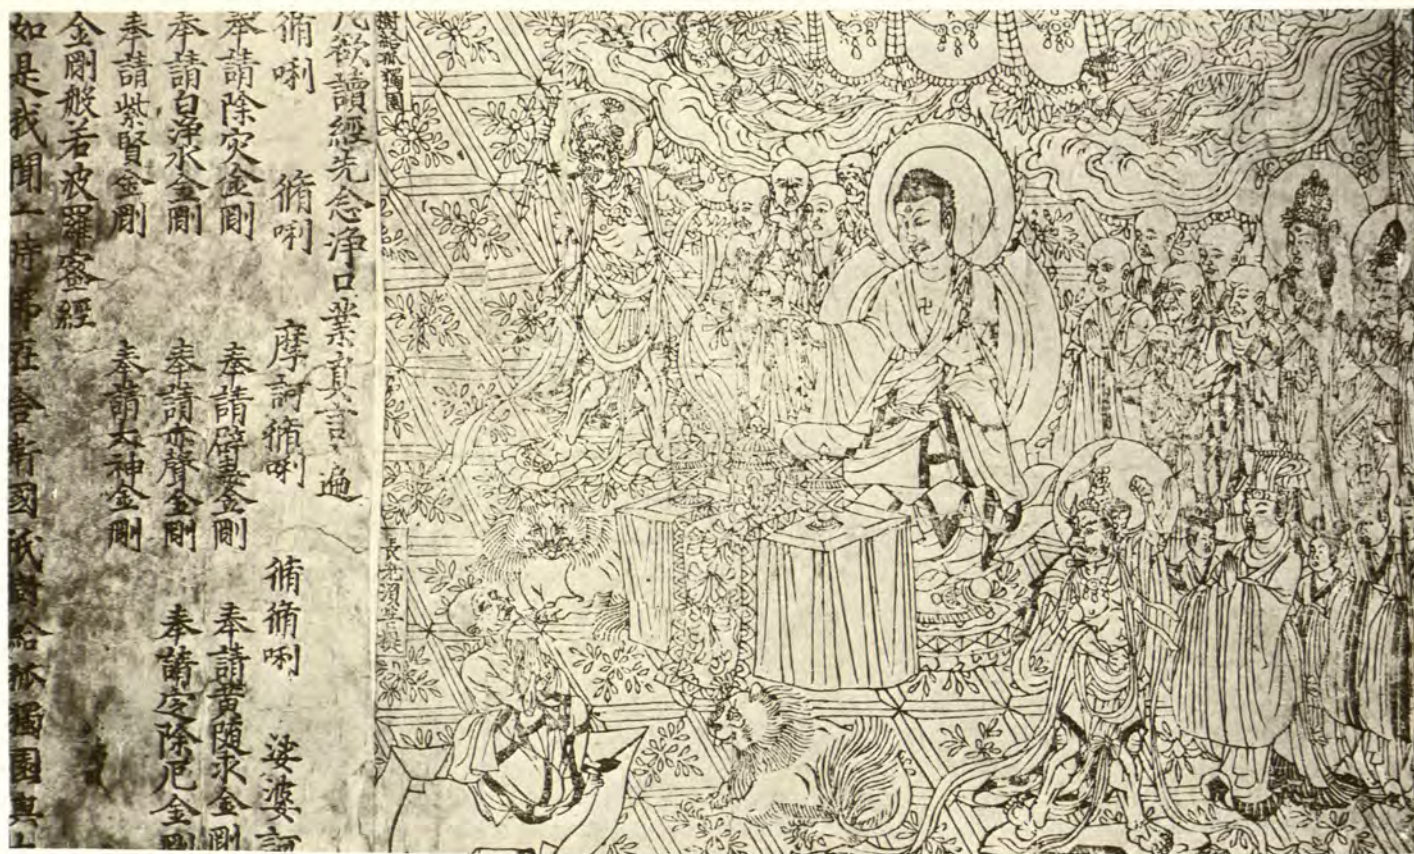 樹給孤獨園
長老須菩提
凡欲讀經先念淨口業真言 遍
脩唎 脩唎 摩訶脩唎 脩脩唎 娑婆訶
奉請除灾金剛 奉請辟毒金剛 奉請黃隨求金剛
奉請白淨水金剛 奉請赤聲金剛 奉請定除厄金剛
奉請紫賢金剛 奉請大神金剛
金剛般若波羅蜜經
如是我聞一時佛在舍衛國祇樹給孤獨園與